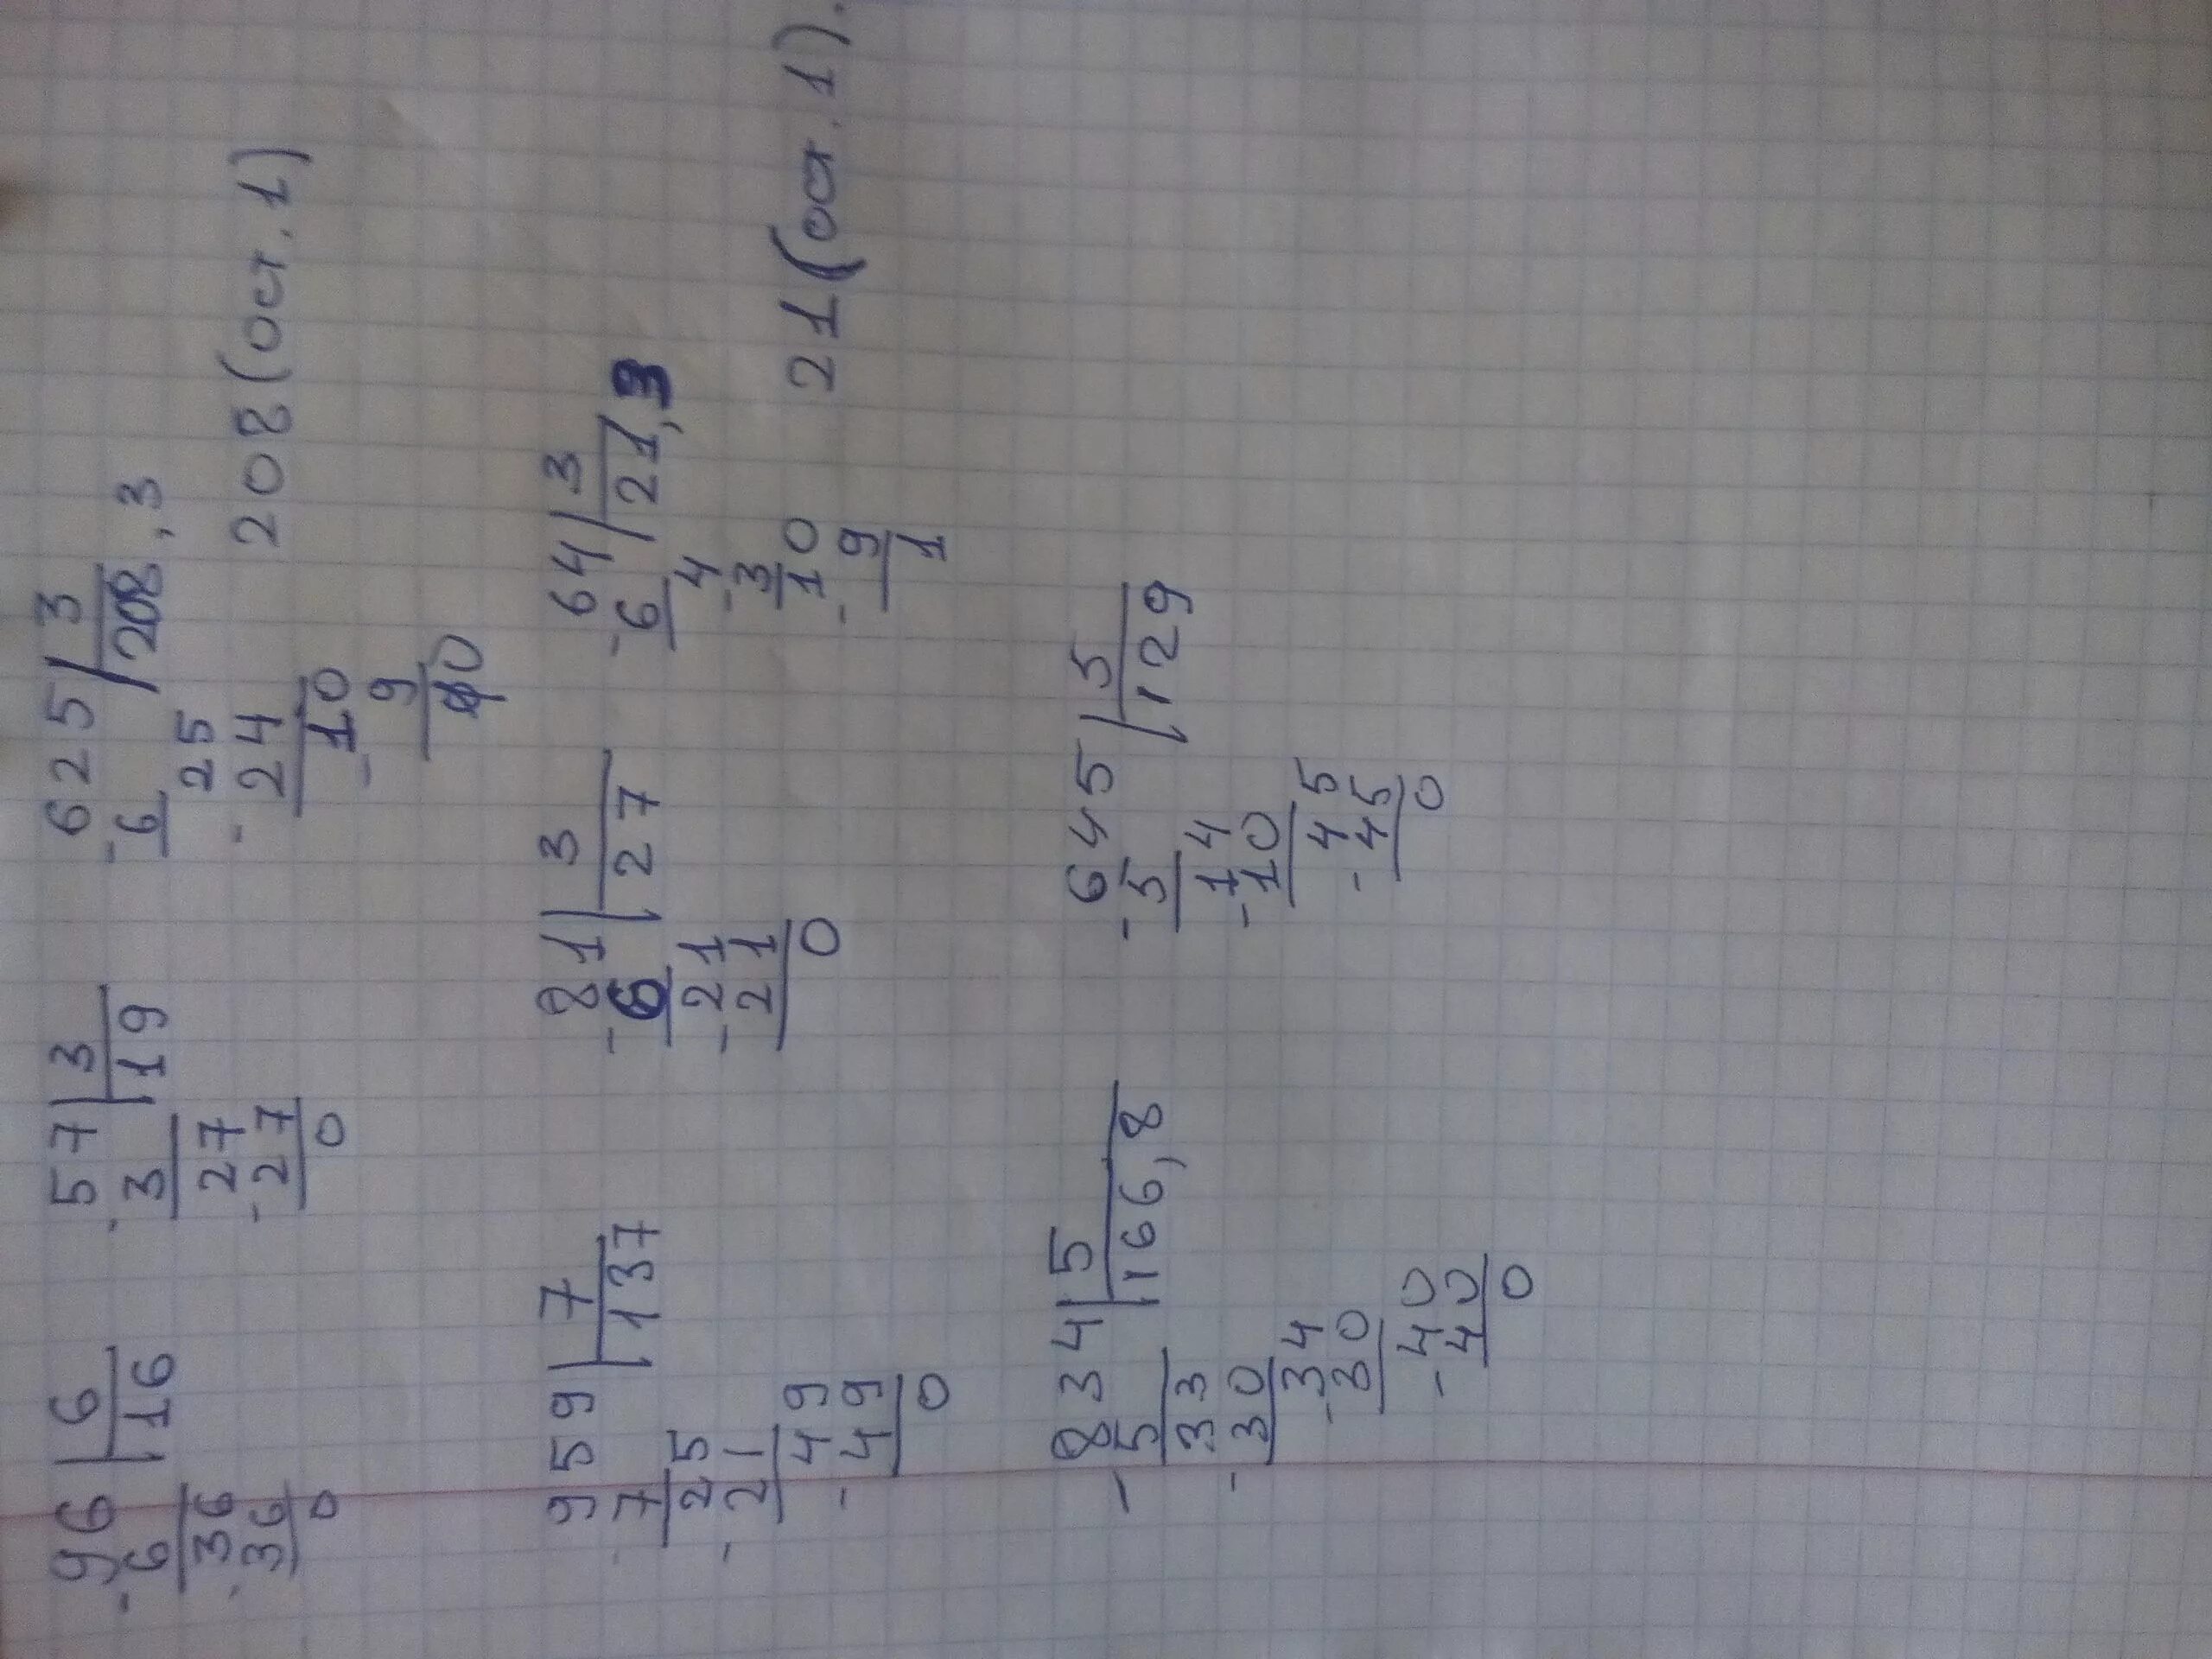 96 | 6
- 6 | 16
36
- 36
0
57 | 3
- 3 | 19
27
- 27
0
625 | 3
- 6 | 208,3
25
- 24
10
- 9
0
208 (ост. 1)
959 | 7
- 7 | 137
25
- 21
49
- 49
0
81 | 3
- 6 | 27
21
- 21
0
64 | 3
- 6 | 21,3
4
- 3
10
- 9
1
21 (ост. 1).
834 | 5
- 5 | 166,8
33
- 30
34
- 30
40
- 40
0
645 | 5
- 5 | 129
14
- 10
45
- 45
0